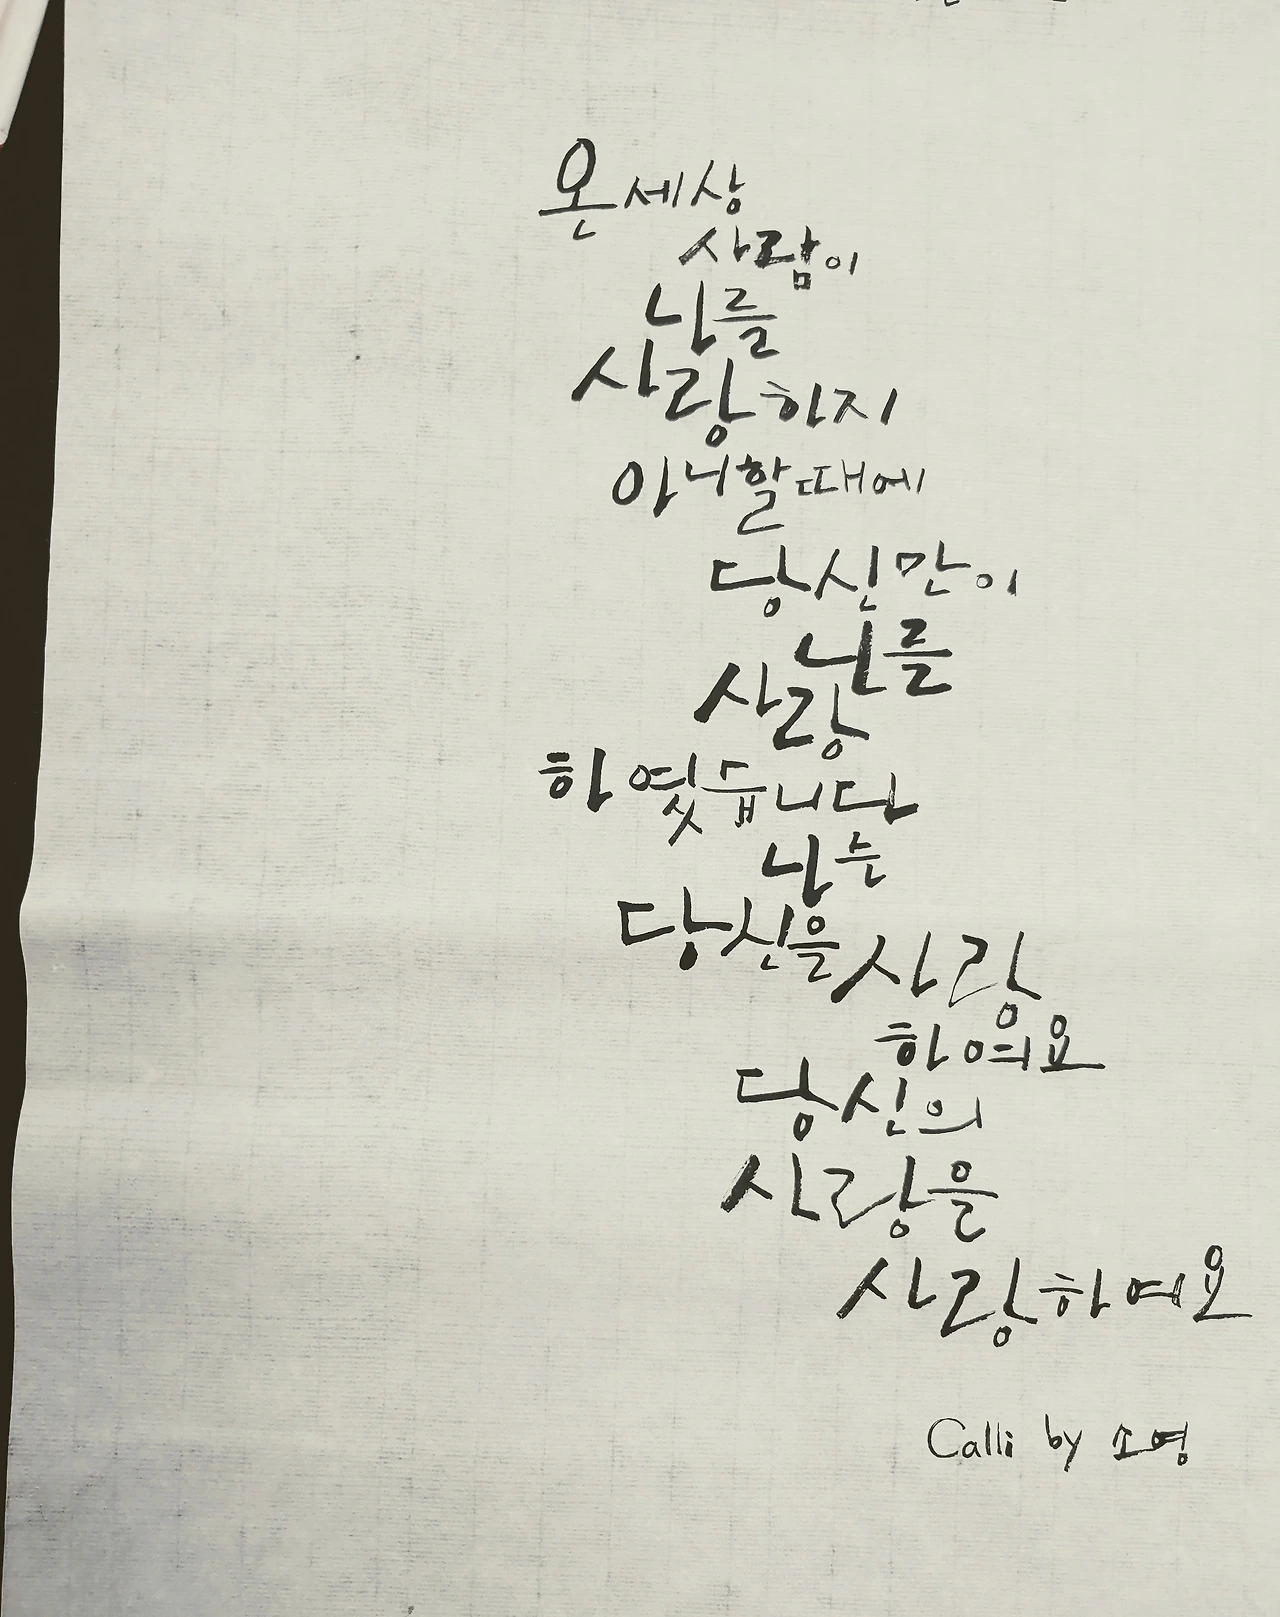 온세상
사람이
나를
사랑하지
아니할때에
당신만이
나를
사랑
하엿듭니다
나는
당신을 사랑
하여요
당신의
사랑을
사랑하여요
Calli by 소영